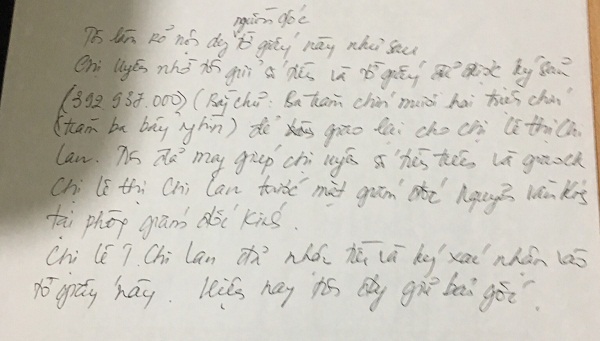 nguồn gốc
Tôi làm rõ nội dung tờ giấy này như sau
Chị Uyên nhờ tôi giữ số tiền và tờ giấy đã được ký sẵn
(392.937.000) (Bằng chữ: Ba trăm chín mươi hai triệu chín
trăm ba bảy nghìn) để giao lại cho chị Lê thị Chi
Lan. Tôi đã giúp chị Uyên số tiền trên và giao
chị Lê thị Chi Lan trước mặt giám đốc Nguyễn Văn
tại phòng giám đốc
Chị Lê T. Chi Lan đã nhận tiền và ký xác nhận vào
tờ giấy này. Hiện nay tôi giữ bản gốc.